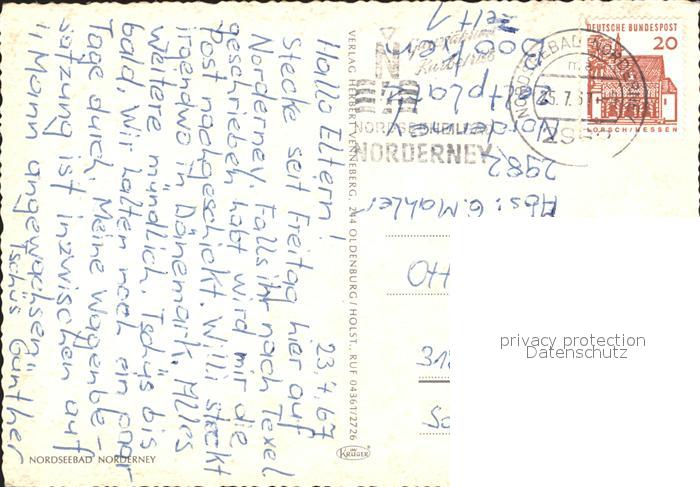 23.7.67
Hallo Eltern!
Stecke seit Freitag hier auf
Norderney. Falls ihr nach Texel
geschrieben habt wird mir die
Post nachgeschickt. Willi steckt
irgendwo in Dänemark. Alles
weitere mündlich. Tschüs bis
bald. Wir halten noch ein paar
Tage durch. Meine Wagenbe-
satzung ist inzwischen auf
Mann angewachsen
Tschüs Günther
NORDSEEBAD NORDERNEY
VERLAG HERBERT VENNEBERG, 244 OLDENBURG/HOLST., RUF 04361/2726
KRÜGER
Abs: G. Mahler
2982 Norderney
Zeltplatz
Zelt 1
N
NORDSEEHEILBAD
NORDERNEY
NORDSEEBAD NORDERNEY
2982
DEUTSCHE BUNDESPOST
20
LORSCH/HESSEN
privacy protection
Datenschutz